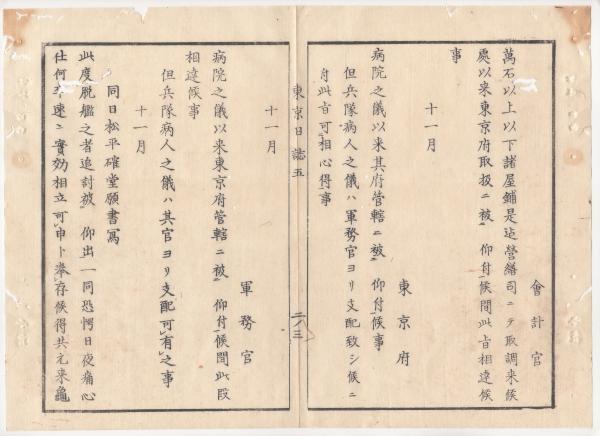 會計官
萬石以上以下諸屋鋪是迠營繕司ニテ取調来候
處以来東京府取扱ニ被 仰付候間此旨相達候
事
十一月
東京府
病院之儀以来其府管轄ニ被 仰付候事
但兵隊病人之儀ハ軍務官ヨリ支配致シ候ニ
付此旨可相心得事
東京日誌五
二ノ三
十一月
軍務官
病院之儀以来東京府管轄ニ被 仰付候間此段
相達候事
但兵隊病人之儀ハ其官ヨリ支配可有之事
十一月
同日松平確堂願書寫
此度脱艦之者追討被 仰出一同恐愕日夜痛心
仕何卒速ニ實効相立可申ト奉存候得共元来龜